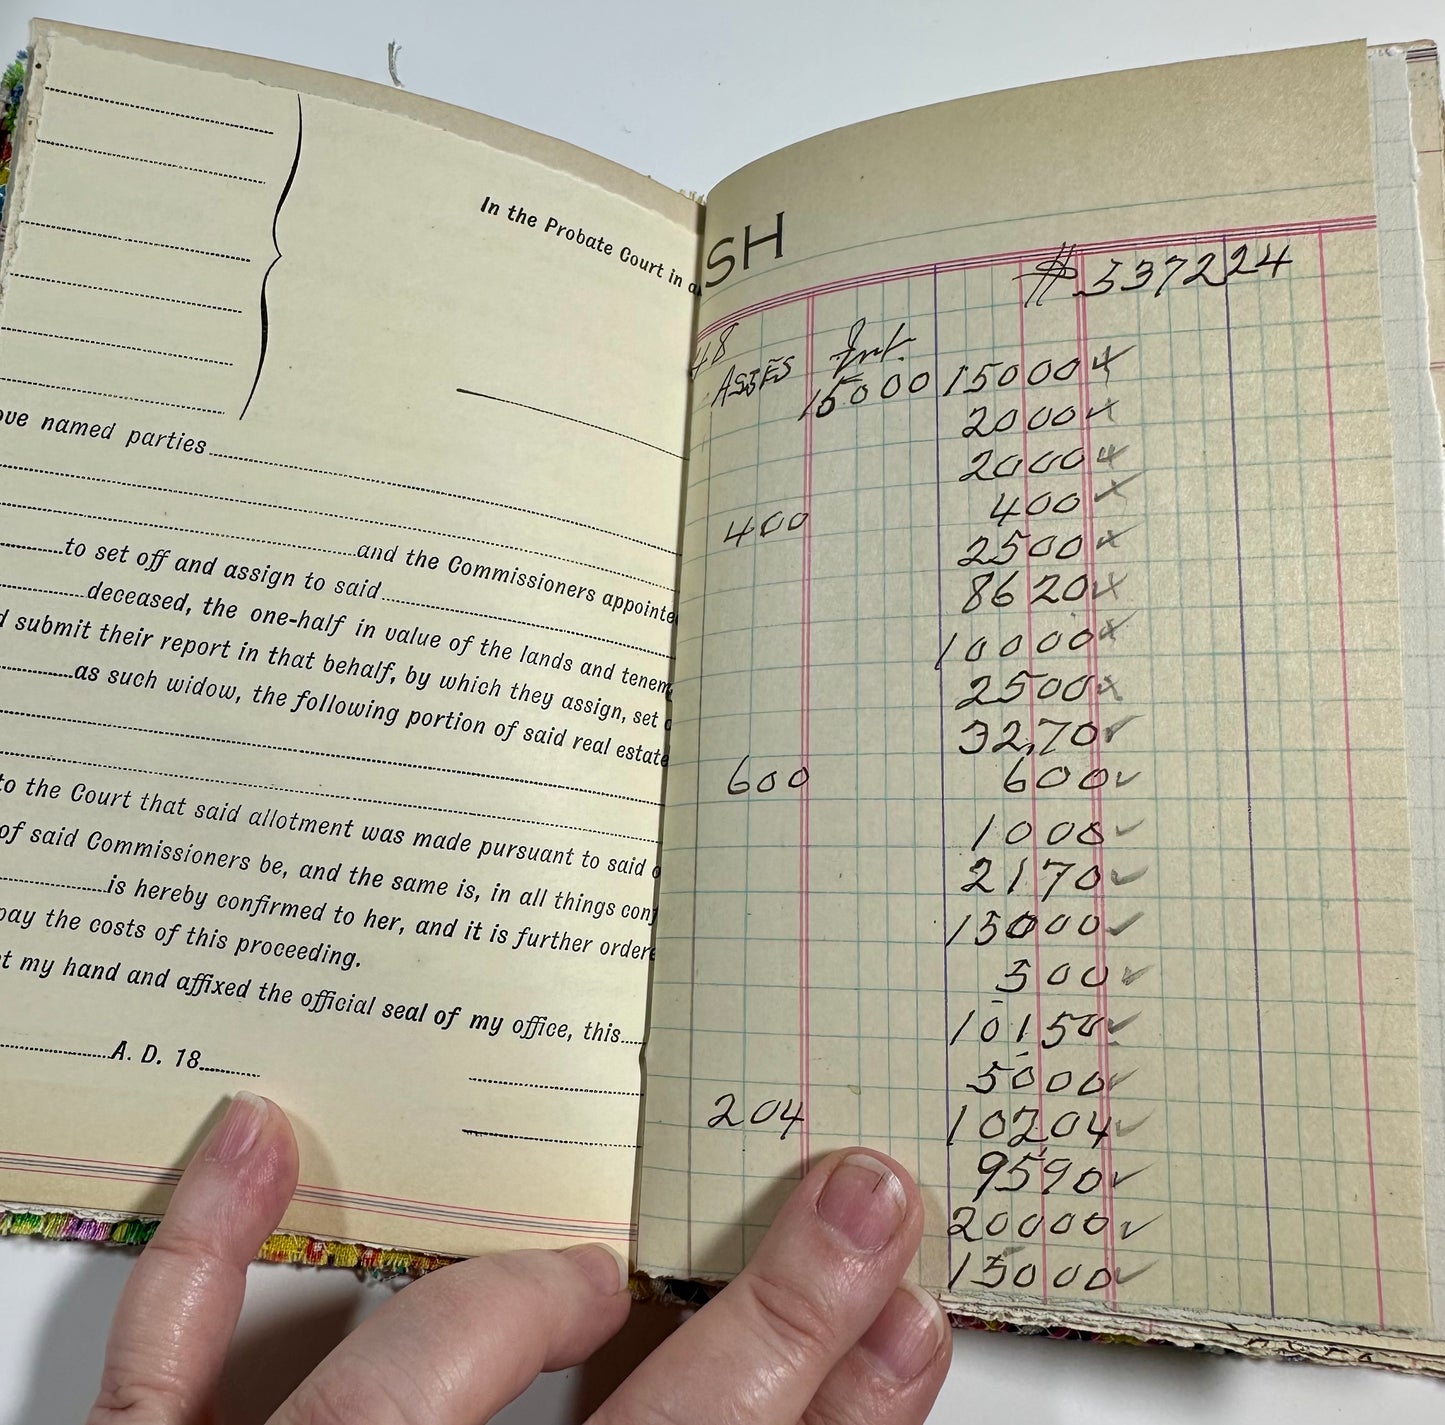 In the Probate Court in a
ove named parties
and the Commissioners appointe
to set off and assign to said
deceased, the one-half in value of the lands and tenem
d submit their report in that behalf, by which they assign, set o
as such widow, the following portion of said real estate
to the Court that said allotment was made pursuant to said o
of said Commissioners be, and the same is, in all things conf
is hereby confirmed to her, and it is further ordere
pay the costs of this proceeding.
et my hand and affixed the official seal of my office, this
A. D. 18
SH
$ 5372 24
48
Int.
15000 15000
2000
2000
400 400
2500
8620
10000
2500
32,70
600 600
1008
2170
15000
500
10150
5000
204 10204
9590
20000
15000